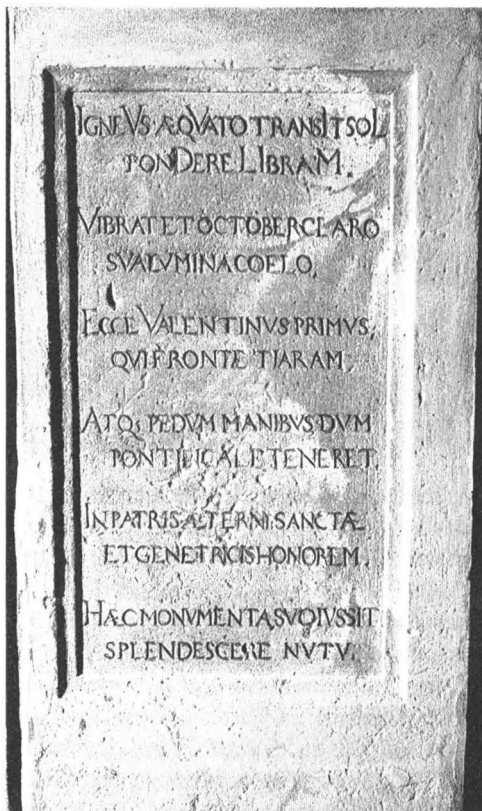 IGNEVS ÆQVATO TRANSIT SOL
PONDERE LIBRAM.
VIBRAT ET OCTOBER CLARO
SVA LVMINA COELO,
ECCE VALENTINVS PRIMVS,
QVI FRONTE TIARAM,
ATQ; PEDVM MANIBVS DVM
PONTIFICALE TENERET.
IN PATRIS ÆTERNI SANCTÆ
ET GENETRICIS HONOREM.
HÆC MONVMENTA SVO IVSSIT
SPLENDESCERE NVTV.